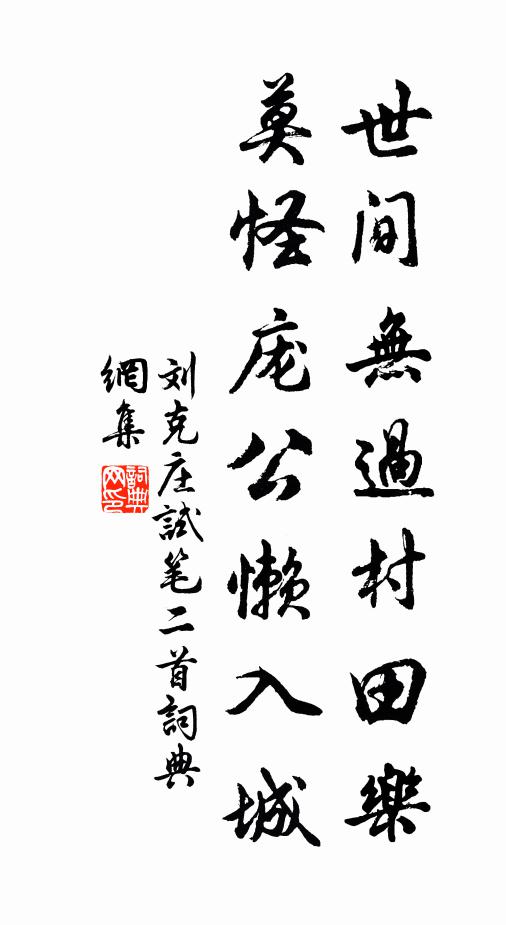 世間無過村田樂
莫怪庞公懒入城
刘克庄試笔二首詞典
網集
詞典網印